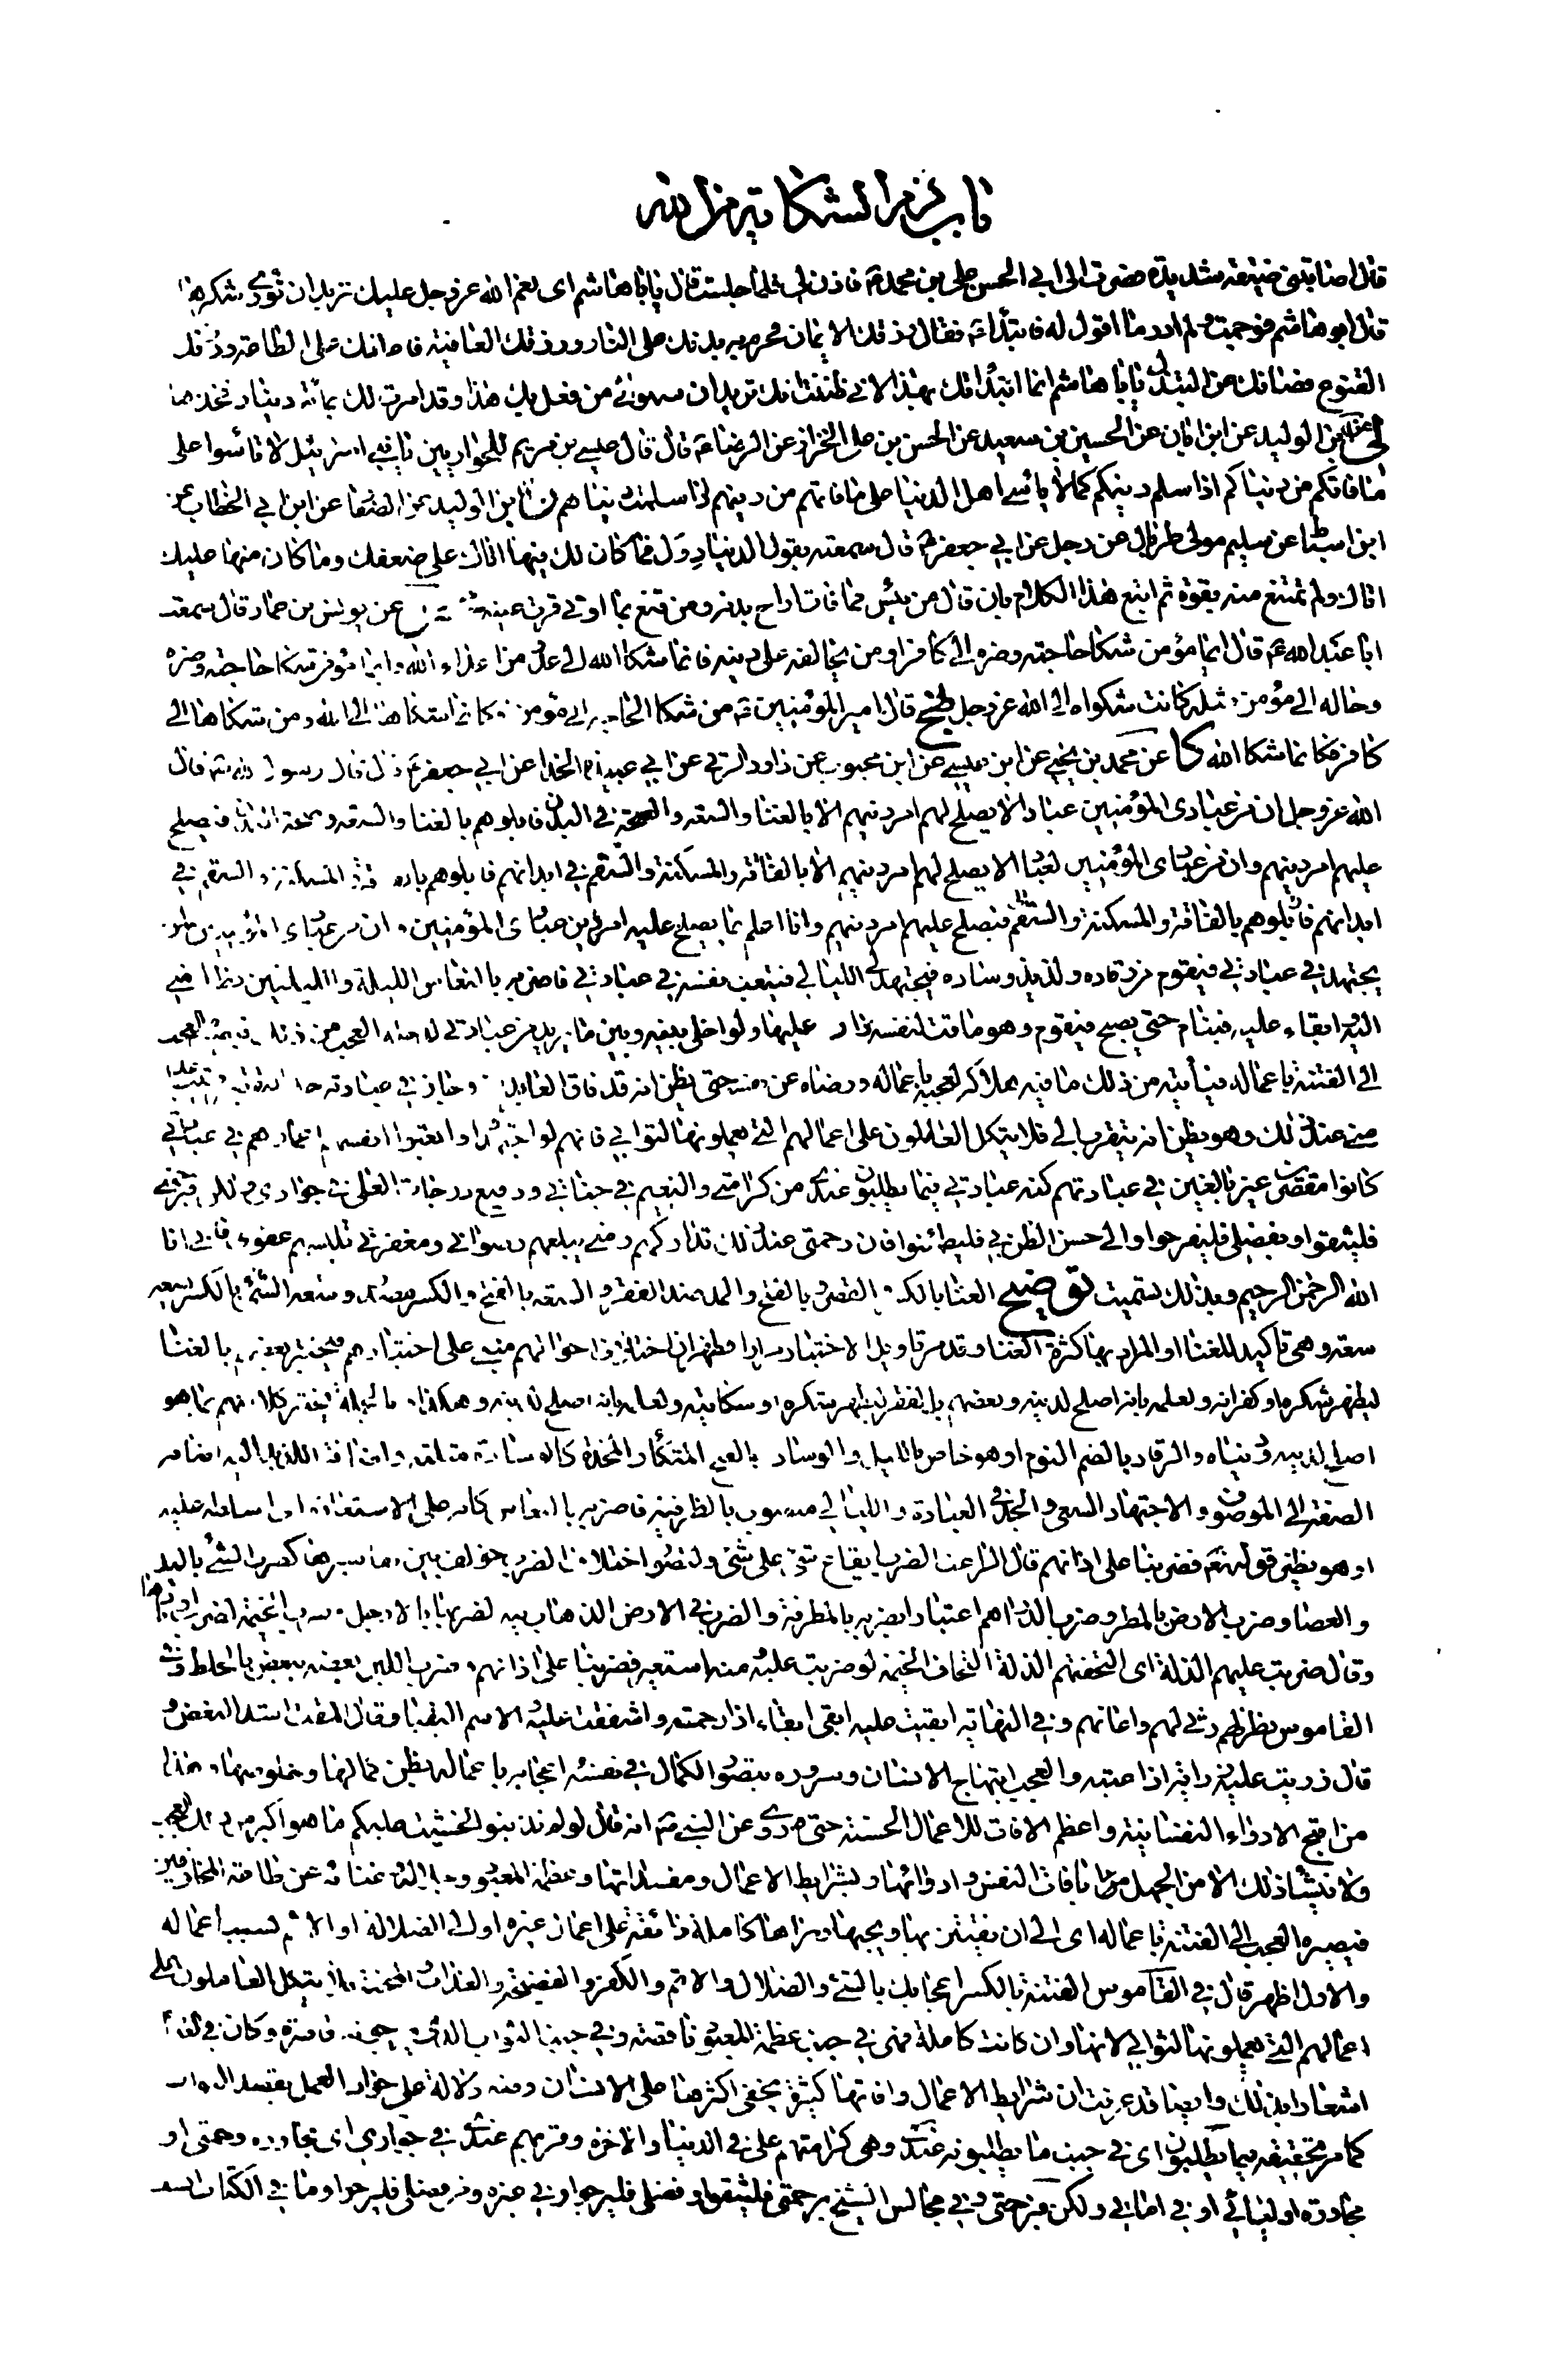 باب ذم الشكاية من الله
قال اصابتنى ضيقة شديدة فصرت الى ابي الحسن على بن محمد ع فاذن لي فلما جلست قال يا با هاشم اى نعم الله عز وجل عليك تريد ان تودي شكرها
قال ابو هاشم فوجمت ولم ادر ما اقول له فابتدأ ع فقال رزقك الايمان فحرم به بدنك على النار ورزقك العافية فاعانك على الطاعة ورزقك
القنوع فصانك عن التبذل يا با هاشم انما ابتدأتك بهذا لاني ظننت انك تريد ان تشكو لي من فعل بك هذا وقد امرت لك بمائة دينار فخذها
لي عن ابن الوليد عن ابن ابان عن الحسين بن سعيد عن الحسن بن على الخزاز عن الرضا ع قال قال عيسى بن مريم للحواريين يا بني اسرئيل لا تأسوا على
ما فاتكم من دنياكم اذا سلم دينكم كما لا يأسى اهل الدنيا على ما فاتهم من دينهم اذا سلمت دنياهم ابن الوليد عن الصفا عن ابن ابي الخطاب عن
ابن اسباط عن سليم مولى طربال عن رجل عن ابي جعفر ع قال سمعته يقول الدنيا دول فما كان لك منها اتاك على ضعفك وما كان منها عليك
اتاك ولم تمتنع منه بقوة ثم اتبع هذا الكلام بان قال من يئس مما فات اراح بدنه ومن قنع بما اوتي قرت عينه عن يونس بن عمار قال سمعت
ابا عبد الله ع قال ايما مؤمن شكا حاجته وضره الى كافر او من يخالفه على دينه فانما شكا الله الى عدو من اعداء الله وايما مؤمن شكا حاجته وضره
وحاله الى مؤمن مثله كانت شكواه الى الله عز وجل نهج قال امير المؤمنين ع من شكا الحاجة الى مؤمن فكانما شكاها الى الله ومن شكاها الى
كافر فكانما شكا الله كا عن محمد بن يحيى عن ابن عيسى عن ابن محبوب عن داود الرقي عن ابي عبيدة الحذاء عن ابي جعفر ع قال قال رسول الله ص قال
الله عز وجل ان من عبادى المؤمنين عبادا لا يصلح لهم امر دينهم الا بالغنا والسعة والصحة في البدن فابلوهم بالغنا والسعة وصحة البدن فيصلح
عليهم امر دينهم وان من عبادى المؤمنين لعبادا لا يصلح لهم امر دينهم الا بالفاقة والمسكنة والسقم في ابدانهم فابلوهم بالفاقة والمسكنة والسقم في
ابدانهم فابلوهم بالفاقة والمسكنة والسقم فيصلح عليهم امر دينهم وانا اعلم بما يصلح عليه امر دين عبادى المؤمنين وان من عبادى المؤمنين لمن
يجتهد في عبادتي فيقوم من رقاده ولذيذ وساده فيجتهد لي الليالي فيتعب نفسه في عبادتي فاضربه بالنعاس الليلة والليلتين نظرا مني
اليه وابقاء عليه فينام حتى يصبح فيقوم وهو ماقت لنفسه زار عليها ولو اخلى بينه وبين ما يريد من عبادتي لدخله العجب من ذلك فيصيره العجب
الى الفتنة باعماله فيأتيه من ذلك ما فيه هلاكه لعجبه باعماله ورضاه عن نفسه حتى يظن انه قد فاق العابدين وجاز في عبادته حد التقصير فيتباعد
منى عند ذلك وهو يظن انه يتقرب الي فلا يتكل العاملون على اعمالهم التي يعملونها لثوابي فانهم لو اجتهدوا واتعبوا انفسهم اعمارهم في عبادتي
كانوا مقصرين غير بالغين في عبادتهم كنه عبادتي فيما يطلبون عندى من كرامتي والنعيم في جناتي ورفيع درجات العلى في جواري ولكن برحمتي
فليثقوا وبفضلى فليفرحوا والى حسن الظن بي فليطمئنوا فان رحمتى عند ذلك تداركهم ومني يبلغهم رضواني ومغفرتي تلبسهم عفوي فاني انا
الله الرحمن الرحيم وبذلك تسميت توضيح الغنا بالكسر والقصر وبالفتح والمد ضد الفقر والسعة بالفتح والكسر مصدر وسعه الشئ بالكسر يسعه
سعة وهي تأكيد للغنا او المراد بها كثرة الغنا وقد مر تاويل الاختبار مرارا فظهر ان اختلاف احوالهم مبني على اختبارهم فيختبر بعضهم بالغنا
ليظهر شكره او كفرانه ولعلمه بانه اصلح لدينه وبعضهم بالفقر ليظهر شكره او شكايته ولعلمه بانه اصلح لدينه وهكذا وبالجملة يختبر كلا منهم بما هو
اصلح لدينه ودنياه والرقاد بالضم النوم او هو خاص بالليل والوساد بالفتح المتكأ والمخدة كالوسادة مثلثة واضافة اللذيذ اليه اضافة
الصفة الى الموصوف والاجتهاد السعى والجد في العبادة والليالي منصوب بالظرفية فاضربه بالنعاس كانه على الاستعارة اى اسلطه عليه
او هو نظير قوله تع فضربنا على اذانهم قال الراغب الضرب ايقاع شئ على شئ ولتصور اختلاف الضرب خولف بين تفاسيرها كضرب الشئ باليد
والعصا وضرب الارض بالمطر وضرب الدراهم اعتبارا بضربه بالمطرقة والضرب في الارض الذهاب فيه لضربها بالارجل وضرب الخيمة لضرب اوتادها
وقال ضربت عليهم الذلة اى التحفتهم الذلة التحاف الخيمة لمن ضربت عليه ومنه استعير فضربنا على اذانهم وضرب اللبن بعضه ببعض بالخلط وفي
القاموس نظر لهم رثى لهم واعانهم وفي النهاية ابقيت عليه ابقى ابقاء اذا رحمته واشفقت عليه والاسم البقيا وقال المقت اشد البغض و
قال زريت عليه زراية اذا عتبته والعجب ابتهاج الانسان وسروره بتصور الكمال في نفسه واعجابه باعماله بظن كمالها وخلوصها وهذا
من اقبح الادواء النفسانية واعظم الافات للاعمال الحسنة حتى روى عن النبي ص انه قال لو لم تذنبوا لخشيت عليكم ما هو اكبر من ذلك العجب
ولا ينشأ ذلك الا من الجهل بافات النفس وادوائها وبشرايط الاعمال ومفسداتها وعظمة المعبود وجلاله وغنائه عن طاعة المخلوقين
فيصيره العجب الى الفتنة باعماله اى الى ان يفتتن بها ويحبها ويراها كاملة فائقة على اعمال غيره او الى الضلالة او الاثم بسبب اعماله
والاول اظهر قال في القاموس الفتنة بالكسر اعجابك بالشئ والضلال والاثم والكفر والفضيحة والعذاب والمحنة فلا يتكل العاملون على
اعمالهم التي يعملونها لثوابي لانها وان كانت كاملة فهى في جنب عظمة المعبود ناقصة وفي جنب الثواب الذي يرجونه قاصرة وكان في لفظ
اشعارا بذلك وايضا قد عرفت ان شرايط الاعمال وافاتها كثيرة يخفى اكثرها على الانسان ومنه دلالة على جواز العمل بقصد الثواب
كما مر تحقيقه فيما يطلبون اى في جنب ما يطلبونه عندى وهى كرامتهم على في الدنيا والاخرة وقربهم عندى في جواري اى مجاورة رحمتى او
مجاورة اوليائي او في اماني ولكن فبرحمتى وفي مجالس الشيخ برحمتى فليثقوا وفضلى فليرجوا وفي غيره ومن فضلى فليرجوا وما في الكتاب انسب